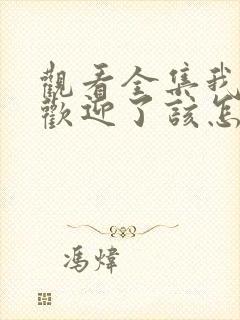 觀看全集我
歡迎了該怎
馮煒